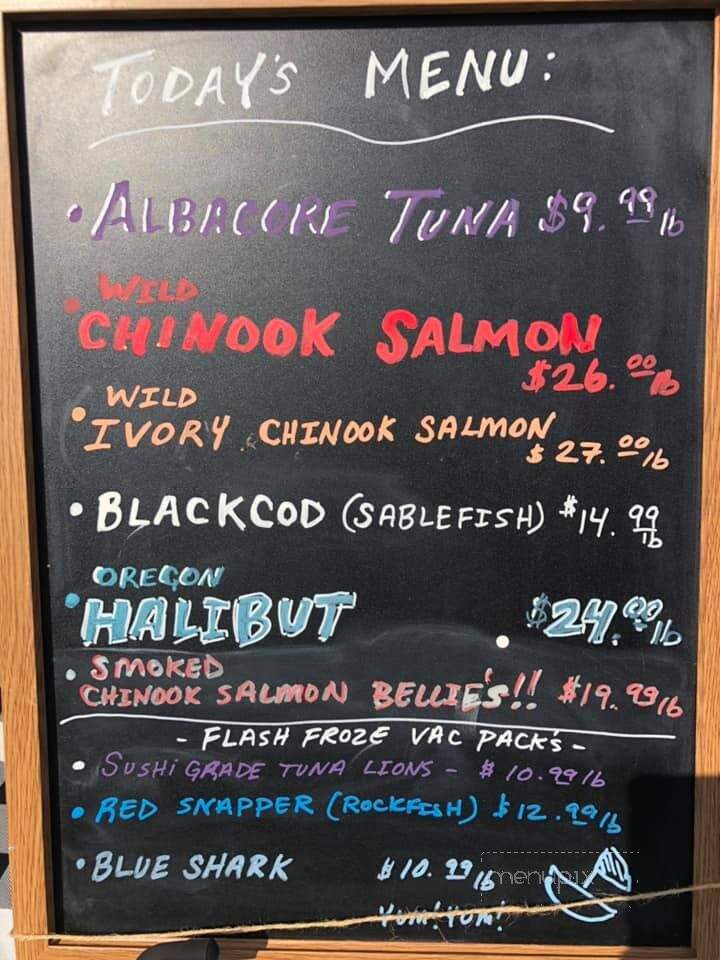 TODAY'S MENU:
• ALBACORE TUNA $9.99 lb
WILD
• CHINOOK SALMON
$26.00 lb
WILD
• IVORY CHINOOK SALMON
$27.00 lb
• BLACKCOD (SABLEFISH) $14.99 lb
OREGON
• HALIBUT $24.00 lb
• SMOKED
CHINOOK SALMON BELLIE'S!! $19.99 lb
- FLASH FROZE VAC PACK'S -
• SUSHI GRADE TUNA LIONS - $10.99 lb
• RED SNAPPER (ROCKFISH) $12.99 lb
• BLUE SHARK $10.99 lb
menupix
YUM! YUM!